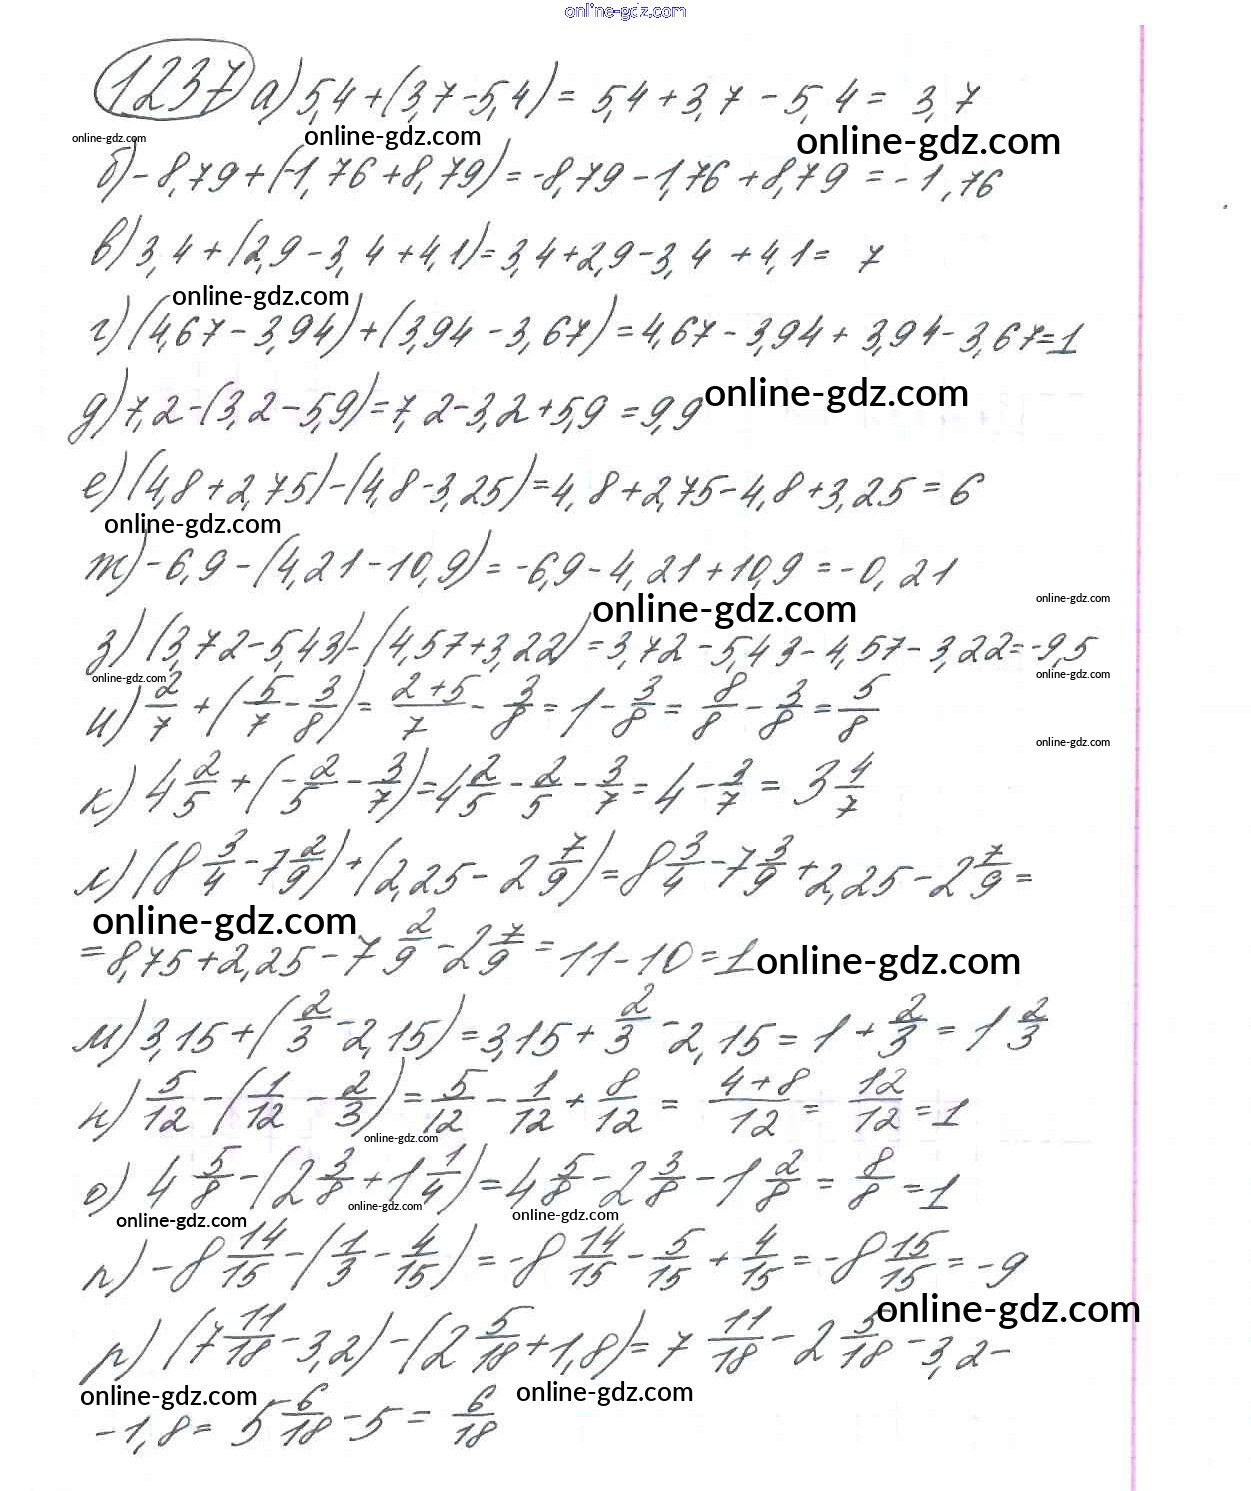 online-gdz.com
1237 а) 5,4+(3,7-5,4)= 5,4+3,7-5,4= 3,7
online-gdz.com online-gdz.com online-gdz.com
б) -8,79+(-1,76+8,79)=-8,79-1,76+8,79=-1,76
в) 3,4+(2,9-3,4+4,1)=3,4+2,9-3,4+4,1= 7
online-gdz.com
г) (4,67-3,94)+(3,94-3,67)=4,67-3,94+3,94-3,67=1
д) 7,2-(3,2-5,9)=7,2-3,2+5,9=9,9 online-gdz.com
е) (4,8+2,75)-(4,8-3,25)=4,8+2,75-4,8+3,25=6
online-gdz.com
ж) -6,9-(4,21-10,9)=-6,9-4,21+10,9=-0,21
online-gdz.com online-gdz.com
з) (3,72-5,43)-(4,57+3,22)=3,72-5,43-4,57-3,22=-9,5
online-gdz.com online-gdz.com
и) 2/7+(5/7-3/8)= (2+5)/7-3/8=1-3/8=8/8-3/8=5/8
online-gdz.com
к) 4 2/5+(-2/5-3/7)=4 2/5-2/5-3/7=4-3/7=3 4/7
л) (8 3/4-7 2/9)+(2,25-2 7/9)=8 3/4-7 3/9+2,25-2 7/9=
online-gdz.com
=8,75+2,25-7 2/9-2 7/9=11-10=1 online-gdz.com
м) 3,15+(2/3-2,15)=3,15+2/3-2,15=1+2/3=1 2/3
н) 5/12-(1/12-2/3)=5/12-1/12+8/12= (4+8)/12= 12/12=1
online-gdz.com
о) 4 5/8-(2 3/8+1 1/4)=4 5/8-2 3/8-1 2/8= 8/8=1
online-gdz.com online-gdz.com online-gdz.com
п) -8 14/15-(1/3-4/15)=-8 14/15-5/15+4/15=-8 15/15=-9
online-gdz.com
р) (7 11/18-3,2)-(2 5/18+1,8)= 7 11/18-2 5/18-3,2-
online-gdz.com online-gdz.com
-1,8= 5 6/18-5= 6/18